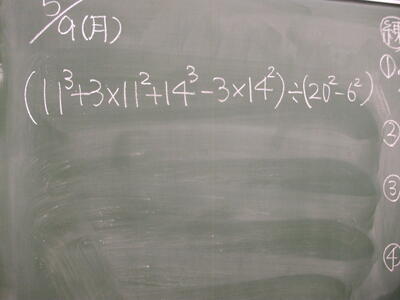 5/9(月)
(11³+3×11²+14³-3×14²)÷(20²-6²)
練
①
②
③
④